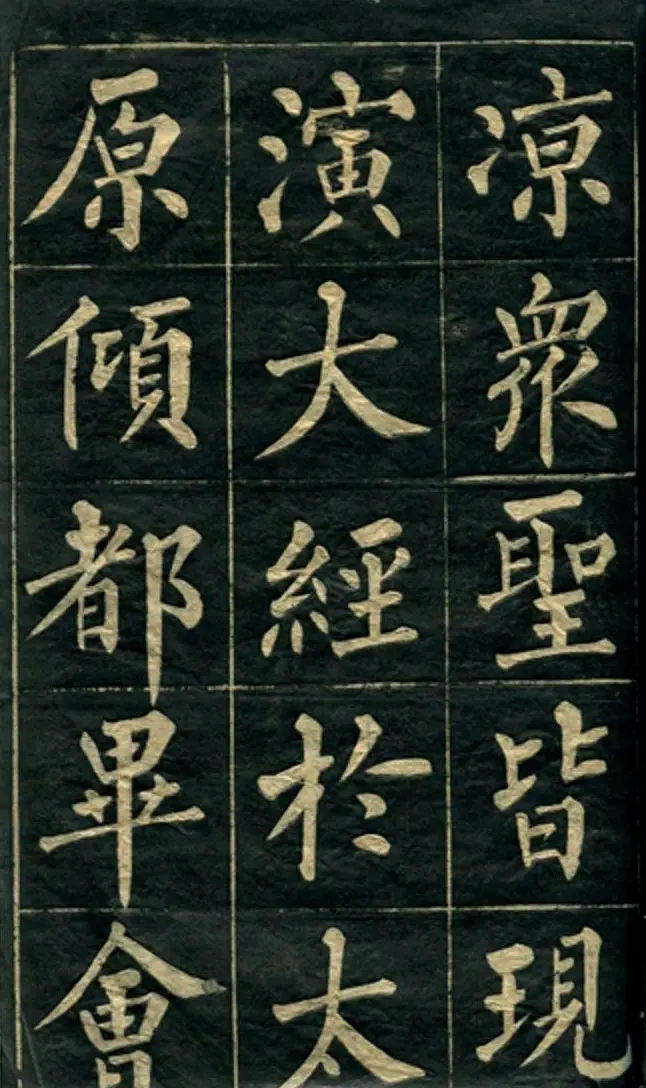 凉衆聖皆現
演大經於太
原傾都畢會